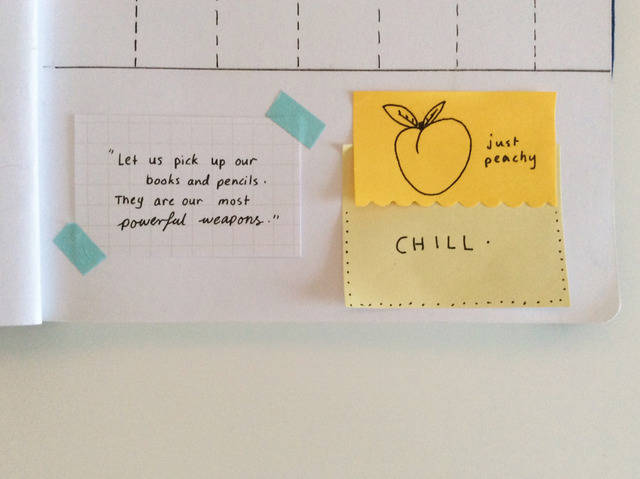 "Let us pick up our
books and pencils.
They are our most
powerful weapons."
just
peachy
CHILL.